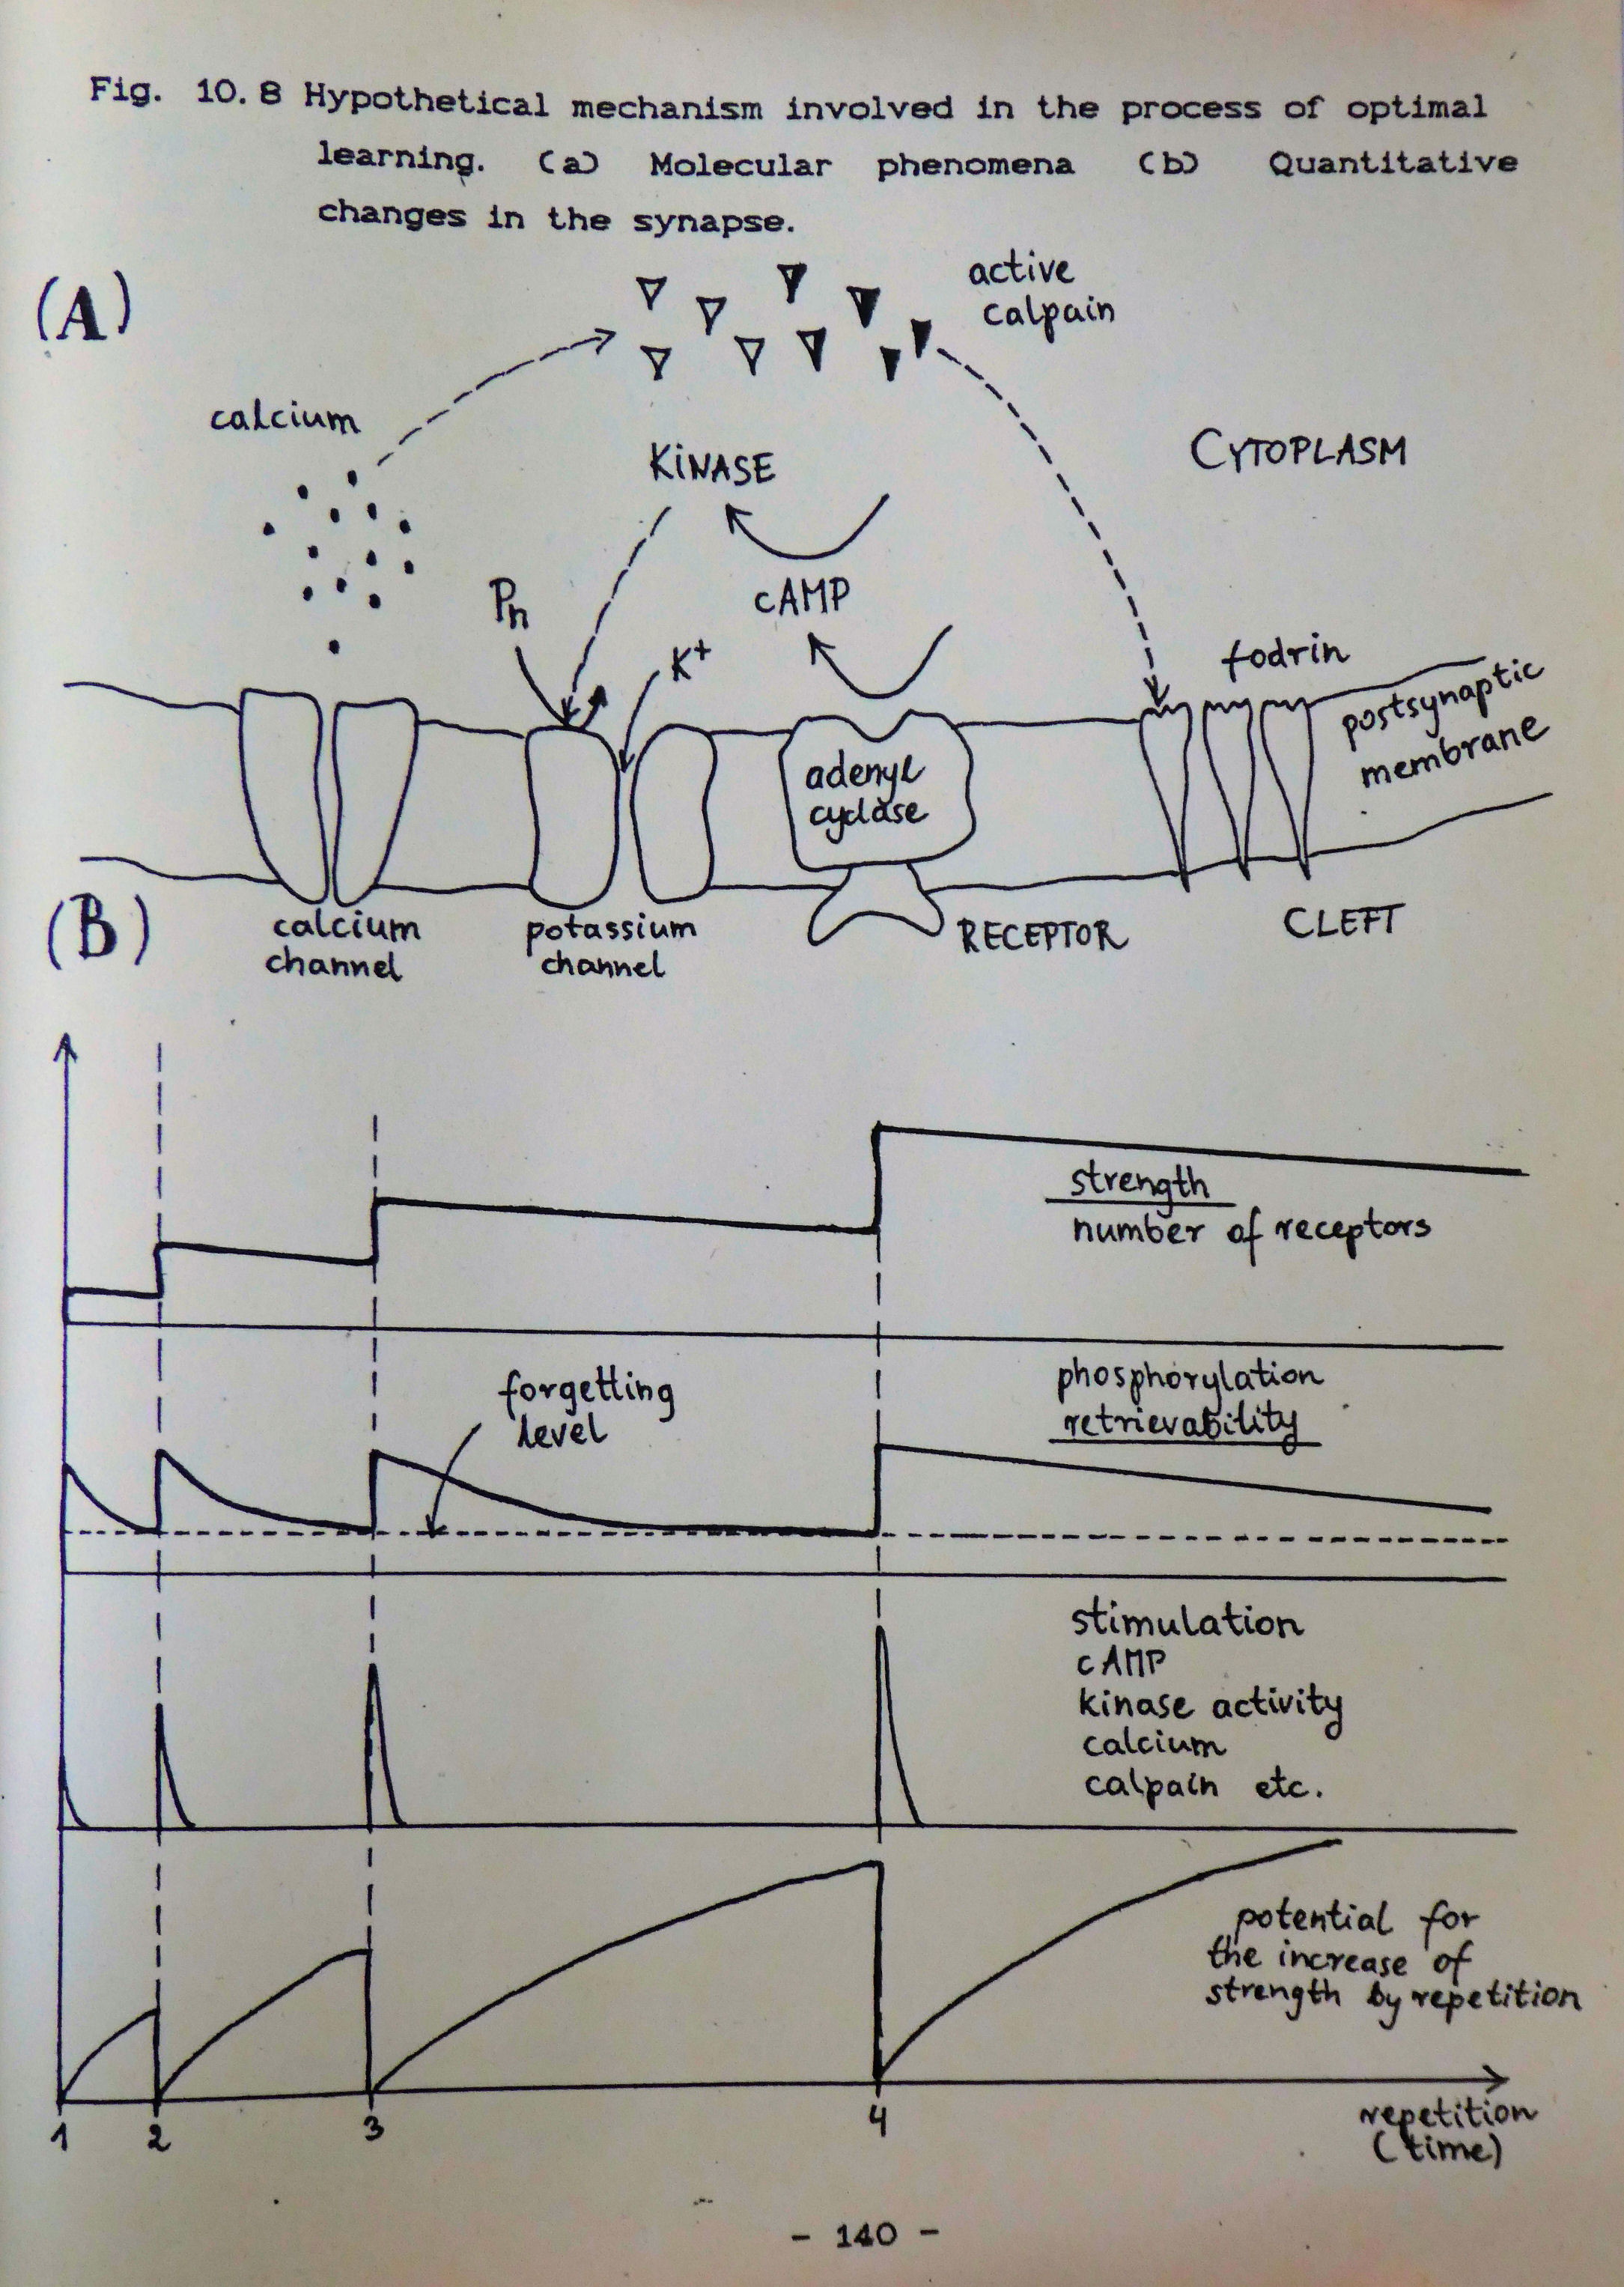 Fig. 10.8 Hypothetical mechanism involved in the process of optimal
learning. (a) Molecular phenomena (b) Quantitative
changes in the synapse.
(A)
active
calpain
calcium
KINASE
CYTOPLASM
Pn
cAMP
K+
fodrin
postsynaptic
membrane
adenyl
cyclase
(B)
calcium
channel
potassium
channel
RECEPTOR
CLEFT
strength
number of receptors
forgetting
level
phosphorylation
retrievability
stimulation
cAMP
kinase activity
calcium
calpain etc.
potential for
the increase of
strength by repetition
1 2 3 4
repetition
(time)
- 140 -